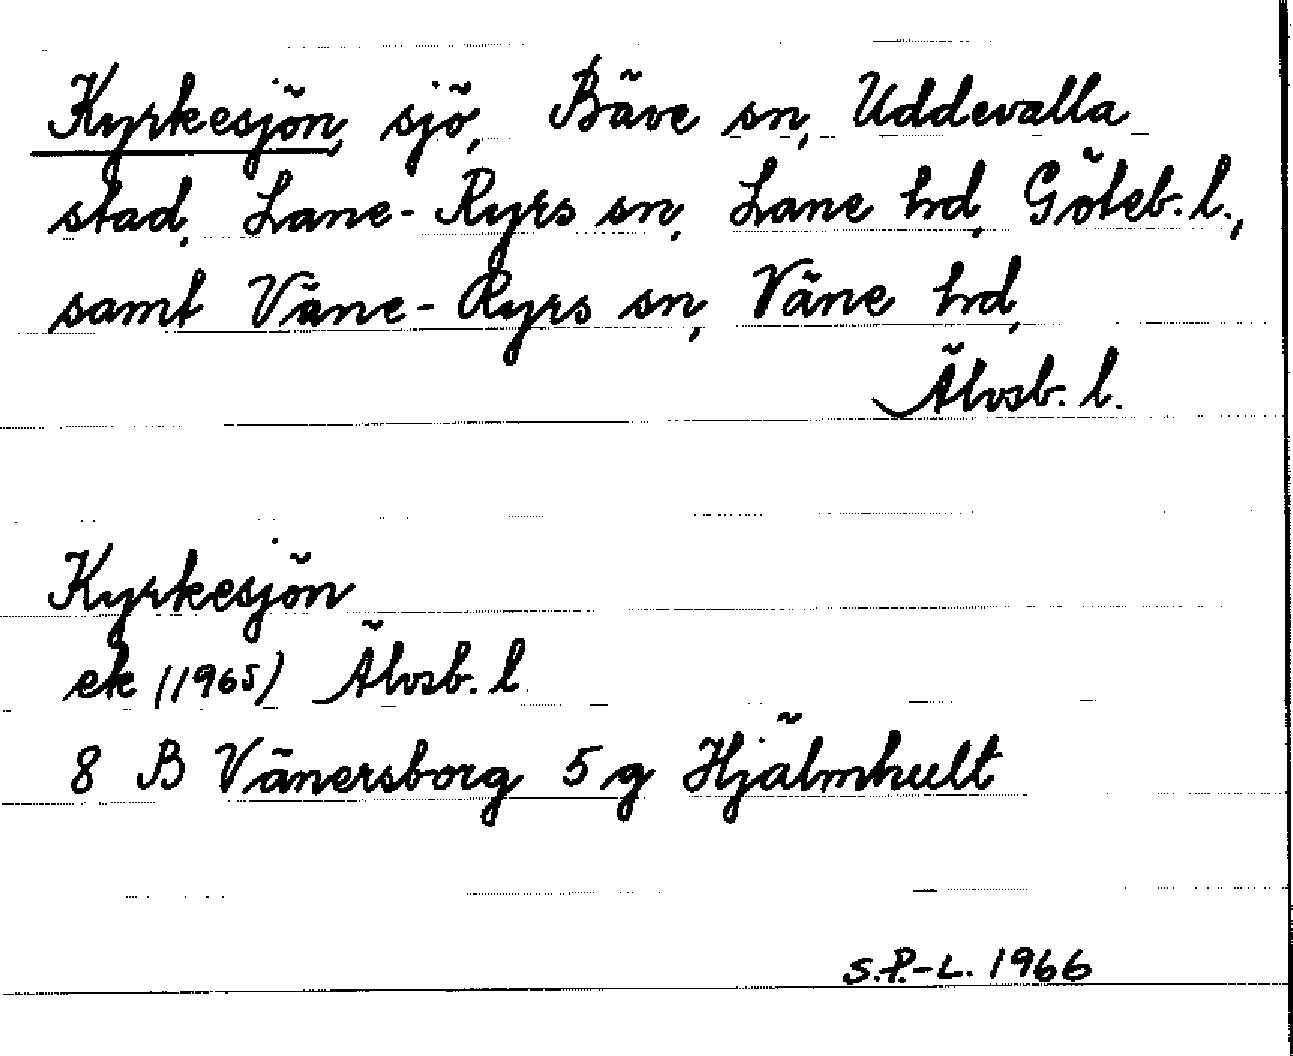 Kyrkesjön, sjö, Bäve sn, Uddevalla
stad, Lane-Ryrs sn, Lane hd, Göteb. l.,
samt Väne-Ryrs sn, Väne hd,
Älvsb. l.
Kyrkesjön
ek (1965) Älvsb. l
8 B Vänersborg 5 g Hjälmhult
S.P.-L. 1966